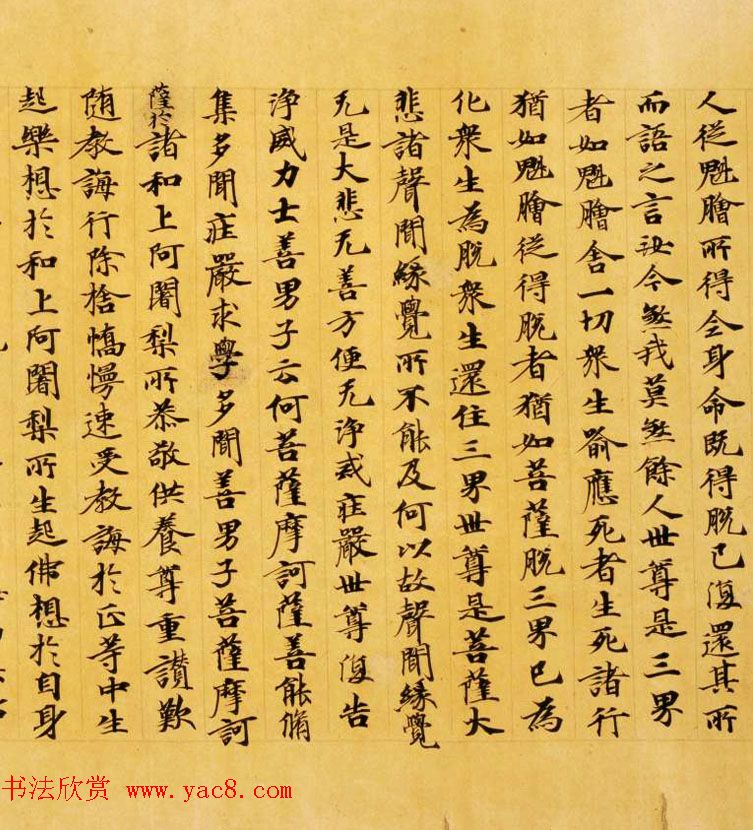 人從魁膾所得全身命既得脫已復還其所
而語之言汝今煞我莫煞餘人世尊是三界
者如魁膾舍一切衆生喻應死者生死諸行
猶如魁膾從得脫者猶如菩薩脫三界已為
化衆生為脫衆生還住三界世尊是菩薩大
悲諸聲聞緣覺所不能及何以故聲聞緣覺
无是大悲无善方便无淨戒莊嚴世尊復告
淨威力士善男子云何菩薩摩訶薩善能脩
集多聞莊嚴求學多聞善男子菩薩摩訶
薩於諸和上阿闍梨所恭敬供養尊重讚歎
随教誨行除捨憍慢速受教誨於正等中生
起樂想於和上阿闍梨所生起佛想於自身
书法欣赏 www.yac8.com